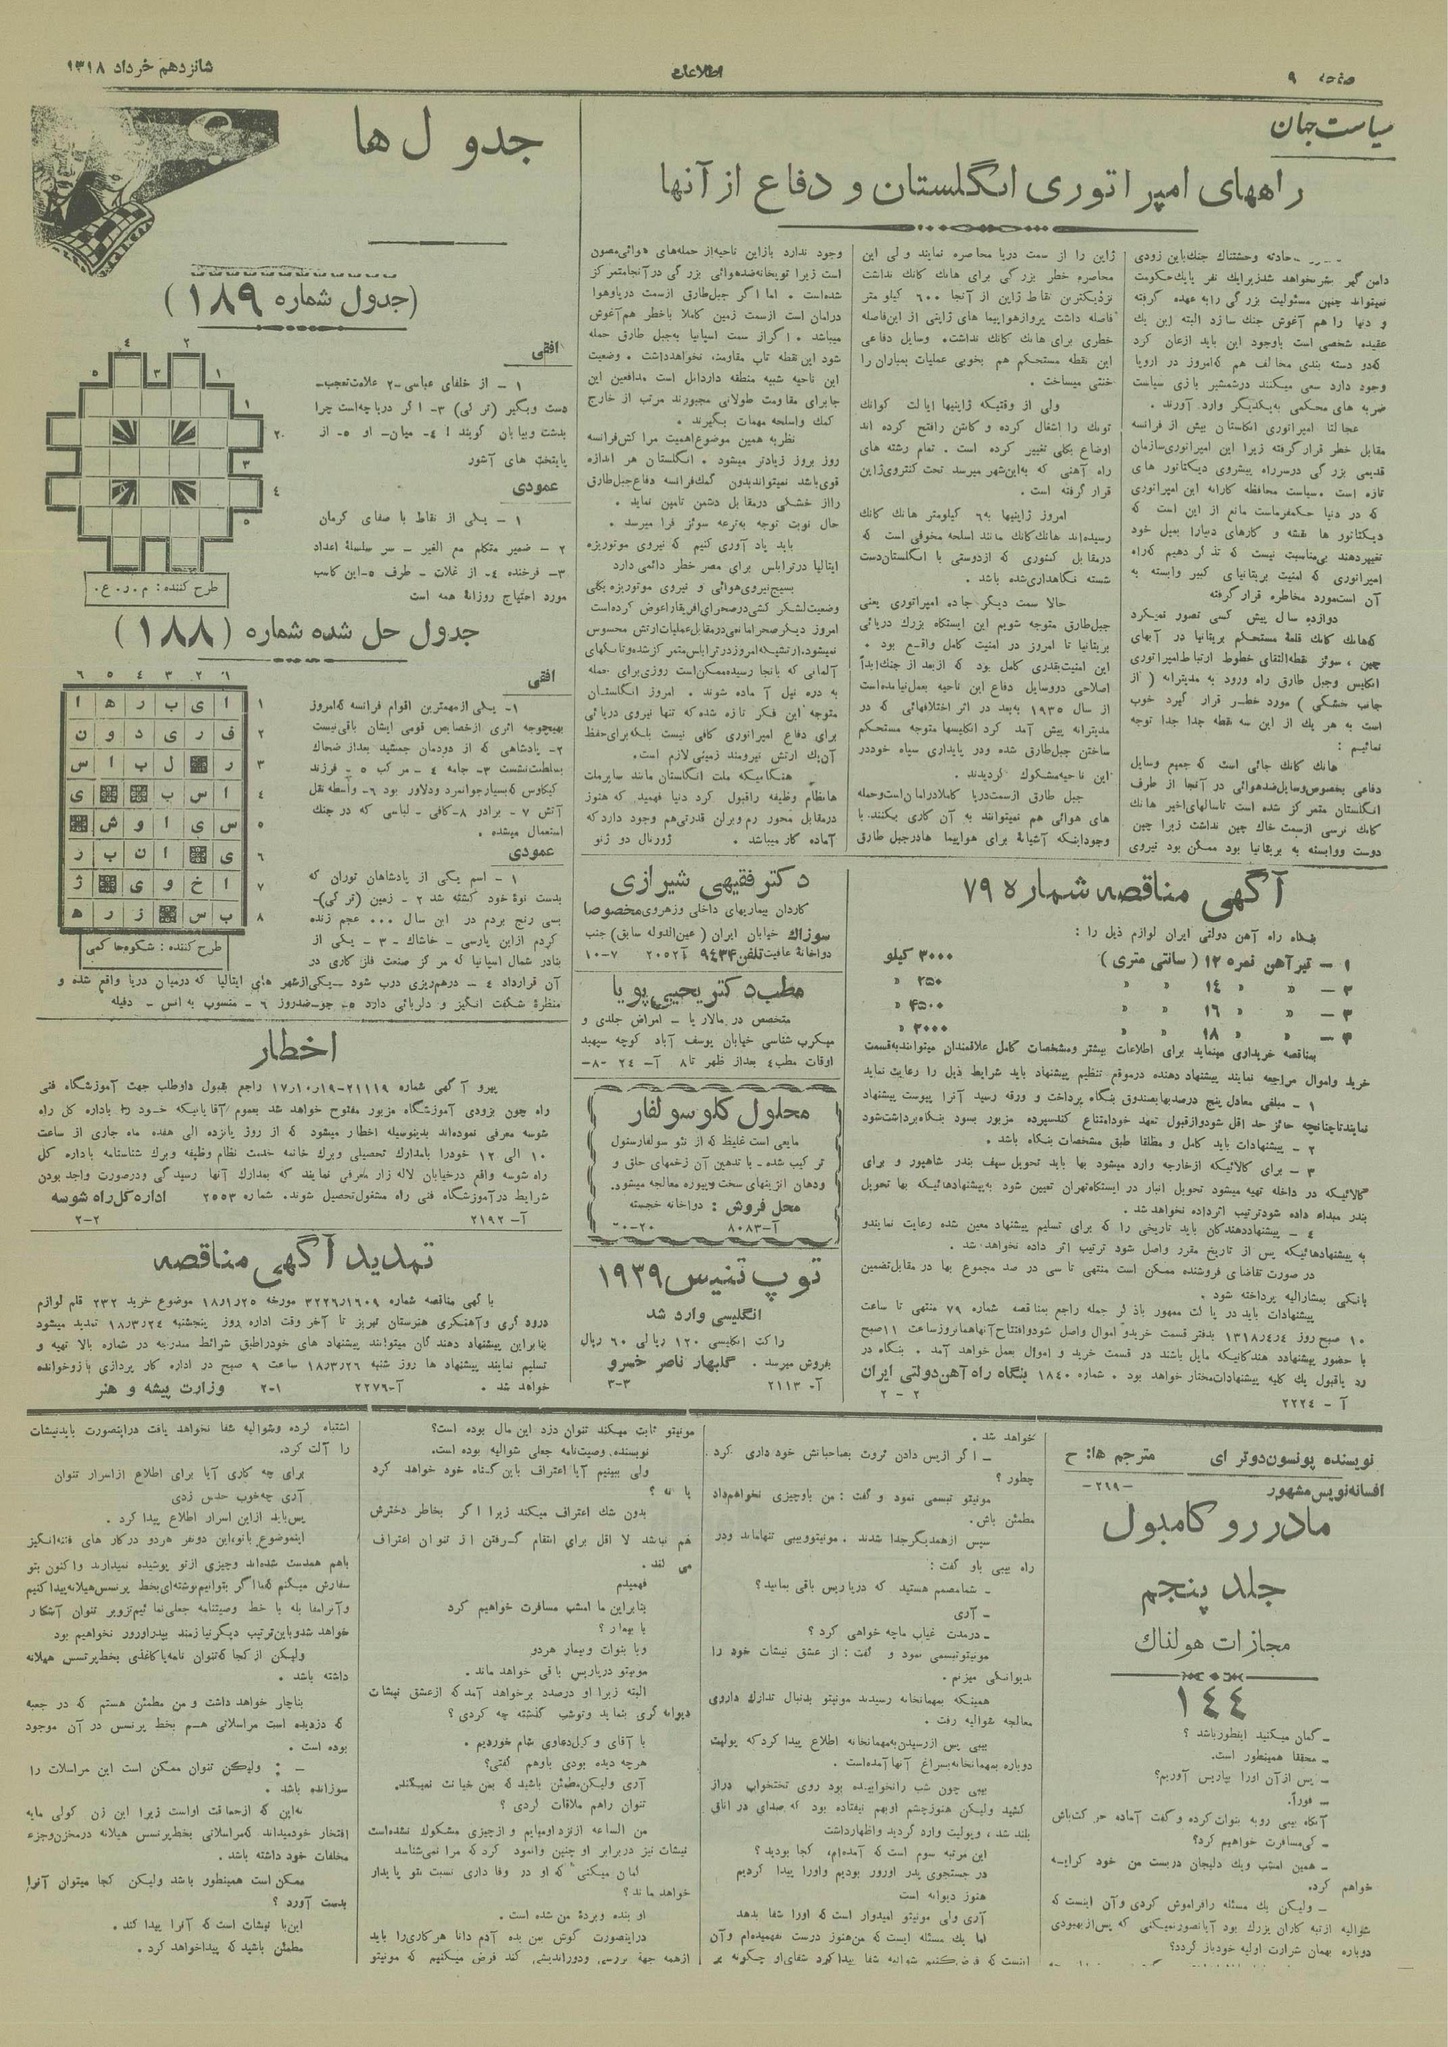 صفحه ۹
اطلاعات
شانزدهم خرداد ۱۳۱۸
سیاست جهان
راههای امپراتوری انگلستان و دفاع از آنها
حادثه وحشتناك جنك باین زودی
دامن گیر بشر نخواهد شد زیرا یك نفر یا یك حکومت
نمیتواند چنین مسئولیت بزرگی را به عهده گرفته
و دنیا را هم آغوش جنك سازد البته این یك
عقیده شخصی است باوجود این باید اذعان کرد
که دو دسته بندی مخالف هم که امروز در اروپا
وجود دارد سعی میکنند در شمشیر بازی سیاست
ضربه های محکمی به یکدیگر وارد آورند .
عجالتا امپراتوری انگلستان بیش از فرانسه
مقابل خطر قرار گرفته زیرا این امپراتوری سازمان
قدیمی بزرگی در سر راه پیشروی دیکتاتور های
تازه است . سیاست محافظه کارانه این امپراتوری
که در دنیا حکمفرماست مانع از این است که
دیکتاتور ها نقشه و کارهای دنیا را بمیل خود
تغییر دهند بی مناسبت نیست که تذکر دهیم که راه
امپراتوری که امنیت بریتانیای کبیر وابسته به
آن است مورد مخاطره قرار گرفته
دوازده سال پیش کسی تصور نمیکرد
که هانك کانك قلعهٔ مستحکم بریتانیا در آبهای
چین ، سوئز نقطه التقای خطوط ارتباط امپراتوری
انگلیس و جبل طارق راه ورود به مدیترانه ( از
جانب خشکی ) مورد خطر قرار گیرد خوب
است به هر یك از این سه نقطه جدا جدا توجه
نمائیم :
هانك کانك جائی است که جمیع وسایل
دفاعی بخصوص وسایل ضد هوائی در آنجا از طرف
انگلستان متمرکز شده است تا سالهای اخیر هانك
کانك ترسی از سمت خاك چین نداشت زیرا چین
دوست و وابسته به بریتانیا بود ممکن بود نیروی
ژاپن را از سمت دریا محاصره نمایند ولی این
محاصره خطر بزرگی برای هانك کانك نداشت
نزدیکترین نقاط ژاپن از آنجا ۶۰۰ کیلو متر
فاصله داشت پرواز هواپیما های ژاپنی از این فاصله
خطری برای هانك کانك نداشت . وسایل دفاعی
این نقطه مستحکم هم بخوبی عملیات بمباران را
خنثی میساخت .
ولی از وقتیکه ژاپنیها ایالت کوانك
تونك را اشغال کرده و کانتن را فتح کرده اند
اوضاع بکلی تغییر کرده است . تمام رشته های
راه آهنی که به این شهر میرسد تحت کنتروی ژاپن
قرار گرفته است .
امروز ژاپنیها به ۶ کیلومتر هانك کانك
رسیده اند هانك کانك مانند اسلحه مخوفی است که
در مقابل کشوری که از دوستی با انگلستان دست
شسته نگاهداری شده باشد .
حالا سمت دیگر جاده امپراتوری یعنی
جبل طارق متوجه شویم این ایستگاه بزرك دریائی
بریتانیا تا امروز در امنیت کامل واقع بود .
این امنیت بقدری کامل بود که از بعد از جنك ابداً
اصلاحی در وسایل دفاع این ناحیه بعمل نیامده است
از سال ۱۹۳۵ به بعد در اثر اختلافهائی که در
مدیترانه پیش آمد کرد انگلیسها متوجه مستحکم
ساختن جبل طارق شده و در پایداری سپاه خود در
این ناحیه مشکوك گردیدند .
جبل طارق از سمت دریا کاملا در امان است و حمله
های هوائی هم نمیتوانند به آن کاری بکنند . با
وجود اینکه آشیانهٔ برای هواپیما ها در جبل طارق
وجود ندارد باز این ناحیه از حمله های هوائی مصون
است زیرا توپخانه ضد هوائی بزرگی در آنجا متمرکز
شده است . اما اگر جبل طارق از سمت دریا و هوا
در امان است از سمت زمین کاملا با خطر هم آغوش
میباشد . اگر از سمت اسپانیا به جبل طارق حمله
شود این نقطه تاب مقاومت نخواهد داشت . وضعیت
این ناحیه شبیه منطقه داردانل است مدافعین این
جا برای مقاومت طولانی مجبورند مرتب از خارج
کمك و اسلحه مهمات بگیرند .
نظر به همین موضوع اهمیت مراکش فرانسه
روز بروز زیادتر میشود . انگلستان هر اندازه
قوی باشد نمیتواند بدون کمك فرانسه دفاع جبل طارق
را از خشکی در مقابل دشمن تامین نماید .
حال نوبت توجه به ترعه سوئز فرا میرسد .
باید یاد آوری کنیم که نیروی موتوریزه
ایتالیا در ترابلس برای مصر خطر دائمی دارد
بسیج نیروی هوائی و نیروی موتوریزه بکلی
وضعیت لشکر کشی در صحرای افریقا را عوض کرده است
امروز دیگر صحرا مانعی در مقابل عملیات ارتش محسوس
نمیشود . ارتشیکه امروز در ترابلس متمرکز شده و تانکهای
آلمانی که بانجا رسیده ممکن است روزی برای حمله
به دره نیل آماده شوند . امروز انگلستان
متوجه این فکر تازه شده که تنها نیروی دریائی
برای دفاع امپراتوری کافی نیست بلکه برای حفظ
آن یك ارتش نیرومند زمینی لازم است .
هنگامیکه ملت انگلستان مانند سایر ملت
ها نظام وظیفه را قبول کرد دنیا فهمید که هنوز
در مقابل محور رم و برلن قدرتی هم وجود دارد که
آماده کار میباشد . ژورنال دو ژنو
جدول ها
(جدول شماره ۱۸۹)
افقی
۱ - از خلفای عباسی - ۲ علامت تعجب -
دست و بگیر (ترکی) ۳- اگر دریاچه است چرا
بدشت و بیابان گویند ! ۴- میان- او ۵- از
پایتخت های آشور
عمودی
۱ - یکی از نقاط با صفای کرمان
۲ - ضمیر متکلم مع الغیر - سر سلسلهٔ اعداد
۳- فرخنده ۴- از غلات - طرف ۵- این کاسب
مورد احتیاج روزانهٔ همه است
۱ ۲ ۳ ۴ ۵
۱
۲
۳
۴
۵
طرح کننده : م . ر . ع .
جدول حل شده شماره (۱۸۸)
افقی
۱- یکی از مهمترین اقوام فرانسه که امروز
بهیچوجه اثری از خصایص قومی ایشان باقی نیست
۲- پادشاهی که از دودمان جمشید بعد از ضحاك
بسلطنت نشست ۳- جامه ۴- مرکب ۵- فرزند
کیکاوس که بسیار جوانمرد و دلاور بود ۶- واسطه نقل
آتش ۷ - برادر ۸- کافی - لباسی که در جنك
استعمال میشده .
عمودی
۱ - اسم یکی از پادشاهان توران که
بدست نوهٔ خود کشته شد ۲ - زمین (ترکی)-
بسی رنج بردم در این سال ... عجم زنده
کردم از این پارسی - خاشاك - ۳ - یکی از
بنادر شمال اسپانیا که مرکز صنعت فلزکاری در
آن قرار دارد ۴ - درهم ریزی درب شود - یکی از شهر های ایتالیا که در میان دریا واقع شده و
منظرهٔ شگفت انگیز و دلربائی دارد ۵- جو- ضد روز ۶ - منسوب به انس - دقیقه
۱ ۲ ۳ ۴ ۵ ۶
۱ ا ی ب ر ه ا
۲ ف ر ی د و ن
۳ ر ل ب ا س
۴ ا س ب ی
۵ س ی ا و ش
۶ ی ا ن ب ر
۷ ا خ و ی ژ
۸ ب س ز ر ه
طرح کننده : شکوه حاکمی
اخطار
پیرو آگهی شماره ۲۱۱۱۹-۱۷/۱۰/۱۹ راجع بقبول داوطلب جهت آموزشگاه فنی
راه چون بزودی آموزشگاه مزبور مفتوح خواهد شد بعموم آقایانیکه خود را باداره کل راه
شوسه معرفی نموده اند بدینوسیله اخطار میشود که از روز پانزده الی هفده ماه جاری از ساعت
۱۰ الی ۱۲ خود را با مدارك تحصیلی و برك خاتمه خدمت نظام وظیفه و برك شناسنامه باداره کل
راه شوسه واقع در خیابان لاله زار معرفی نمایند که بمدارك آنها رسیدگی و در صورت واجد بودن
شرایط در آموزشگاه فنی راه مشغول تحصیل شوند . شماره ۲۵۵۳ اداره کل راه شوسه
آ- ۲۱۹۲ ۲-۲
تمدید آگهی مناقصه
با گهی مناقصه شماره ۳۲۲۶/۱۶۰۹ مورخه ۱۸/۱/۲۵ موضوع خرید ۲۳۲ قلم لوازم
درودگری و آهنگری هنرستان تبریز تا آخر وقت اداره روز پنجشنبه ۱۸/۳/۲۴ تمدید میشود
بنابراین پیشنهاد دهندگان میتوانند پیشنهاد های خود را طبق شرائط مندرجه در شماره بالا تهیه و
تسلیم نمایند پیشنهاد ها روز شنبه ۱۸/۳/۲۶ ساعت ۹ صبح در اداره کار پردازی باز و خوانده
خواهد شد . آ-۲۲۷۶ ۲-۱ وزارت پیشه و هنر
دکتر فقیهی شیرازی
کاردان بیماریهای داخلی و زهروی مخصوصا
سوزاك خیابان ایران ( عین الدوله سابق) جنب
دواخانهٔ عافیت تلفن ۹۴۳۴ آ ۲۰۵۲ ۷-۱۰
مطب دکتر یحیی پویا
متخصص در مالاریا - امراض جلدی و
میکرب شناسی خیابان یوسف آباد کوچه سپهبد
اوقات مطب ۴ بعد از ظهر تا ۸ آ- ۲۴ -۸-
محلول کلو سولفار
مایعی است غلیظ که از نئو سولفار ستول
ترکیب شده - با تدهین آن زخمهای حلق و
و دهان انژینهای سخت و پیوره معالجه میشود.
محل فروش : دواخانه خجسته
آ-۸۰۸۳
توپ تنیس ۱۹۳۹
انگلیسی وارد شد
راکت انگلیسی ۱۲۰ ریالی ۶۰ ریال
بفروش میرسد . گلبهار ناصر خسرو
آ- ۲۱۱۳ ۳-۳
آگهی مناقصه شماره ۷۹
بنگاه راه آهن دولتی ایران لوازم ذیل را :
۱ - تیر آهن نمره ۱۲ ( سانتی متری ) ۳۰۰۰ کیلو
۲ - » » ۱۴ » » ۲۵۰ »
۳ - » » ۱۶ » » ۴۵۰۰ »
۴ - » » ۱۸ » » ۲۰۰۰ »
بمناقصه خریداری مینماید برای اطلاعات بیشتر و مشخصات کامل علاقمندان میتوانند به قسمت
خرید و اموال مراجعه نمایند پیشنهاد دهنده در موقع تنظیم پیشنهاد باید شرایط ذیل را رعایت نماید
۱ - مبلغی معادل پنج درصد بها بصندوق بنگاه پرداخت و ورقه رسید آنرا پیوست پیشنهاد
نمایند تا چنانچه حائز حد اقل شود و از قبول تعهد خود امتناع کند سپرده مزبور بسود بنگاه برداشت شود
۲ - پیشنهادات باید کامل و مطلقا طبق مشخصات بنگاه باشد .
۳ - برای کالائیکه از خارجه وارد میشود بها باید تحویل سیف بندر شاهپور و برای
کالائیکه در داخله تهیه میشود تحویل انبار در ایستگاه تهران تعیین شود به پیشنهادهائیکه بها تحویل
بندر مبداء داده شود ترتیب اثر داده نخواهد شد .
۴ - پیشنهاد دهندگان باید تاریخی را که برای تسلیم پیشنهاد معین شده رعایت نمایند و
به پیشنهادهائیکه پس از تاریخ مقرر واصل شود ترتیب اثر داده نخواهد شد .
در صورت تقاضای فروشنده ممکن است منتهی تا سی در صد مجموع بها در مقابل تضمین
بانکی بمشارالیه پرداخته شود .
پیشنهادات باید در پاکت ممهور با ذکر جمله راجع بمناقصه شماره ۷۹ منتهی تا ساعت
۱۰ صبح روز ۱۳۱۸/۴/۴ بدفتر قسمت خرید و اموال واصل شود و افتتاح آنها همانروز ساعت ۱۱ صبح
با حضور پیشنهاد دهندگانیکه مایل باشند در قسمت خرید و اموال بعمل خواهد آمد . بنگاه در
رد یا قبول یك کلیه پیشنهادات مختار خواهد بود . شماره ۱۸۴۰ بنگاه راه آهن دولتی ایران
آ - ۲۲۲۴ ۲ - ۲
نویسنده پونسون دو ترای مترجم ها: ح
افسانه نویس مشهور -۲۶۹-
مادر رو کامبول
جلد پنجم
مجازات هولناك
۱۴۴
- گمان میکنید اینطور باشد ؟
- محققا همینطور است.
- پس از آن اورا بپاریس آوریم؟
- فوراً.
آنگاه بیبی رو به بنوات کرده و گفت آماده حرکت باش
- کی مسافرت خواهیم کرد؟
- همین امشب و یك دلیجان دربست من خود کرایه
خواهم کرد.
- ولیکن یك مسئله را فراموش کردی و آن اینست که
شوالیه از تبه کاران بزرك بود آیا تصور نمیکنی که پس از بهبودی
دوباره بهمان شرارت اولیه خود باز گردد؟
خواهد شد .
- اگر از پس دادن ثروت بصاحبانش خود داری کرد
چطور ؟
مونیتو تبسمی نمود و گفت : من باو چیزی نخواهم داد
مطمئن باش.
سپس از همدیگر جدا شدند . مونیتو و بیبی تنها ماند و در
راه بیبی باو گفت :
- شما مصمم هستید که در پاریس باقی بمانید؟
- آری
- در مدت غیاب ما چه خواهی کرد ؟
مونیتو تبسمی نمود و گفت : از عشق نیشات خود را
بدیوانگی میزنم .
همینکه بمهمانخانه رسیدند مونیتو بدنبال تدارك داروی
معالجه شوالیه رفت .
بیبی پس از رسیدن به مهمانخانه اطلاع پیدا کرد که یولیت
دوباره بمهمانخانه بسراغ آنها آمده است .
بیبی چون شب را نخوابیده بود روی تختخواب دراز
کشید ولیکن هنوز چشم او بهم نیفتاده بود که صدای در اتاق
بلند شد ، و یولیت وارد گردید و اظهار داشت
این مرتبه سوم است که آمده ام ، کجا بودید ؟
در جستجوی پدر اورور بودیم و او را پیدا کردیم
هنوز دیوانه است
آری ولی مونیتو امیدوار است که اورا شفا بدهد
اما یك مسئله ایست که من هنوز درست نفهمیده ام و آن
اینست که فرض کنیم شوالیه شفا پیدا کرد شفای او چگونه بر
مونیتو ثابت میکند تنوان دزد این مال بوده است؟
نویسنده وصیت نامه جعلی شوالیه بوده است.
ولی ببینیم آیا اعتراف باین گناه خود خواهد کرد
یا نه ؟
بدون شك اعتراف میکند زیرا اگر بخاطر دخترش
هم نباشد لا اقل برای انتقام گرفتن از تنوان اعتراف
می کند .
فهمیدم
بنابراین ما امشب مسافرت خواهیم کرد
با بیمار ؟
و با بنوات و بیمار هر دو
مونیتو در پاریس باقی خواهد ماند .
البته زیرا او درصدد بر خواهد آمد که از عشق نیشات
دیوانه گری بنماید و توشب گذشته چه کردی ؟
با آقای وکیل دعاوی شام خوردیم .
هر چه دیده بودی باوهم گفتی؟
آری ولیکن مطمئن باشید که بمن خیانت نمیکند.
تنوان راهم ملاقات کردی ؟
من الساعه از نزد او میایم و از چیزی مشکوك نشده است
نیشات نیز در برابر او چنین وانمود کرد که مرا نمی شناسد
گمان میکنی که او در وفا داری نسبت بتو پایدار
خواهد ماند ؟
او بنده و بردهٔ من شده است .
در اینصورت گوش بمن بده آدم دانا هر کاری را باید
از همه جهة بررسی و دوراندیشی کند فرض میکنیم که مونیتو
اشتباه کرده و شوالیه شفا نخواهد یافت در اینصورت باید نیشات
را آلت کرد.
برای چه کاری آیا برای اطلاع از اسرار تنوان
آری چه خوب حدس زدی
پس باید از این اسرار اطلاع پیدا کرد .
اینموضوع بانو ، این دو نفر هر دو در کار های فتنه انگیز
باهم همدست شده اند و چیزی از تو پوشیده نمیدارند و اکنون بتو
سفارش میکنم که ما اگر بتوانیم نوشته ای بخط پرنسس هیلانه پیدا کنیم
و آنرا مقابله با خط وصیتنامه جعلی نمائیم تزویر تنوان آشکار
خواهد شد و باین ترتیب دیگر نیازمند بپدر اورور نخواهیم بود
ولیکن از کجا که تنوان نامه یا کاغذی بخط پرنسس هیلانه
داشته باشد .
بناچار خواهد داشت و من مطمئن هستم که در جعبه
که دزدیده است مراسلاتی هم بخط پرنسس در آن موجود
بوده است .
- : ولیکن تنوان ممکن است این مراسلات را
سوزانده باشد .
نه این که از حماقت اواست زیرا این زن کولی مایه
افتخار خود میداند که مراسلاتی بخط پرنسس هیلانه در مخزن و جزء
مخلفات خود داشته باشد .
ممکن است همینطور باشد ولیکن کجا میتوان آنرا
بدست آورد ؟
این با نیشات است که آنرا پیدا کند .
مطمئن باشید که پیدا خواهد کرد .